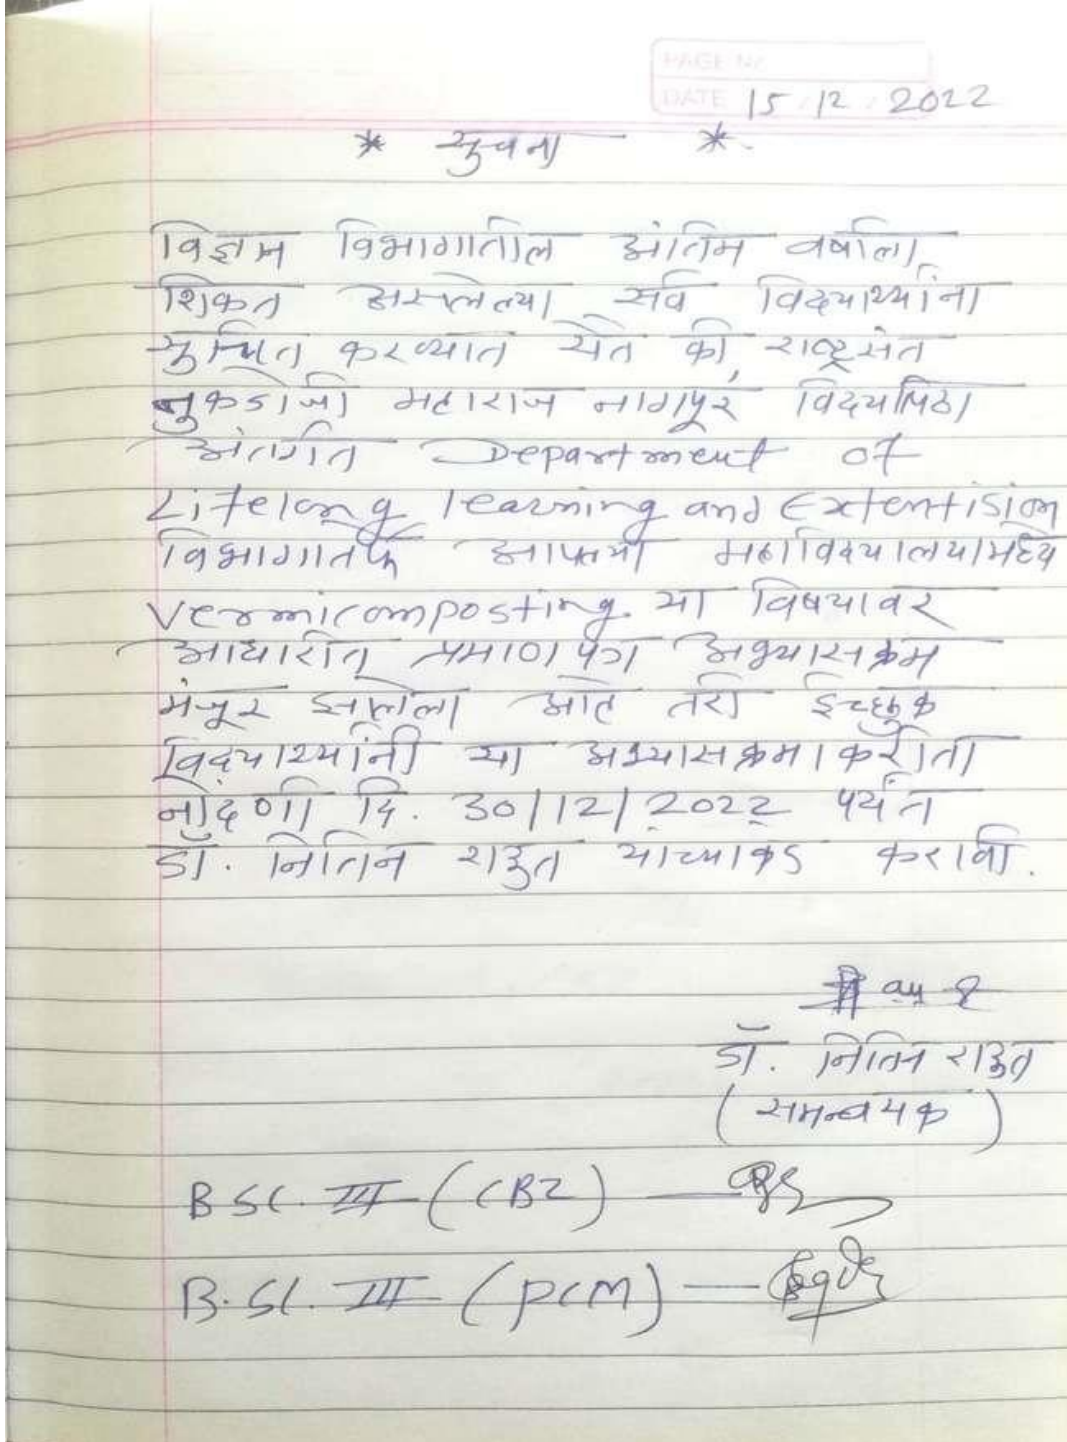 PAGE No.
DATE 15/12/2022
* सुचना *
विज्ञान विभागातील अंतिम वर्षाला
शिकत असलेल्या सर्व विद्यार्थ्यांना
सुचित करण्यात येते की, राष्ट्रसंत
तुकडोजी महाराज नागपूर विद्यापिठा
अंतर्गत Department of
Lifelong learning and Extentision
विभागातर्फे आपल्या महाविद्यालयामध्ये
Vermicomposting या विषयावर
आधारीत प्रमाणपत्र अभ्यासक्रम
मंजूर झालेला आहे तरी इच्छुक
विद्यार्थ्यांनी या अभ्यासक्रमाकरीता
नोंदणी दि. 30/12/2022 पर्यंत
डॉ. नितिन राऊत यांच्याकडे करावी.
डॉ. नितिन राऊत
(समन्वयक)
B.SC. III (CBZ) —
B.SC. III (PCM) —